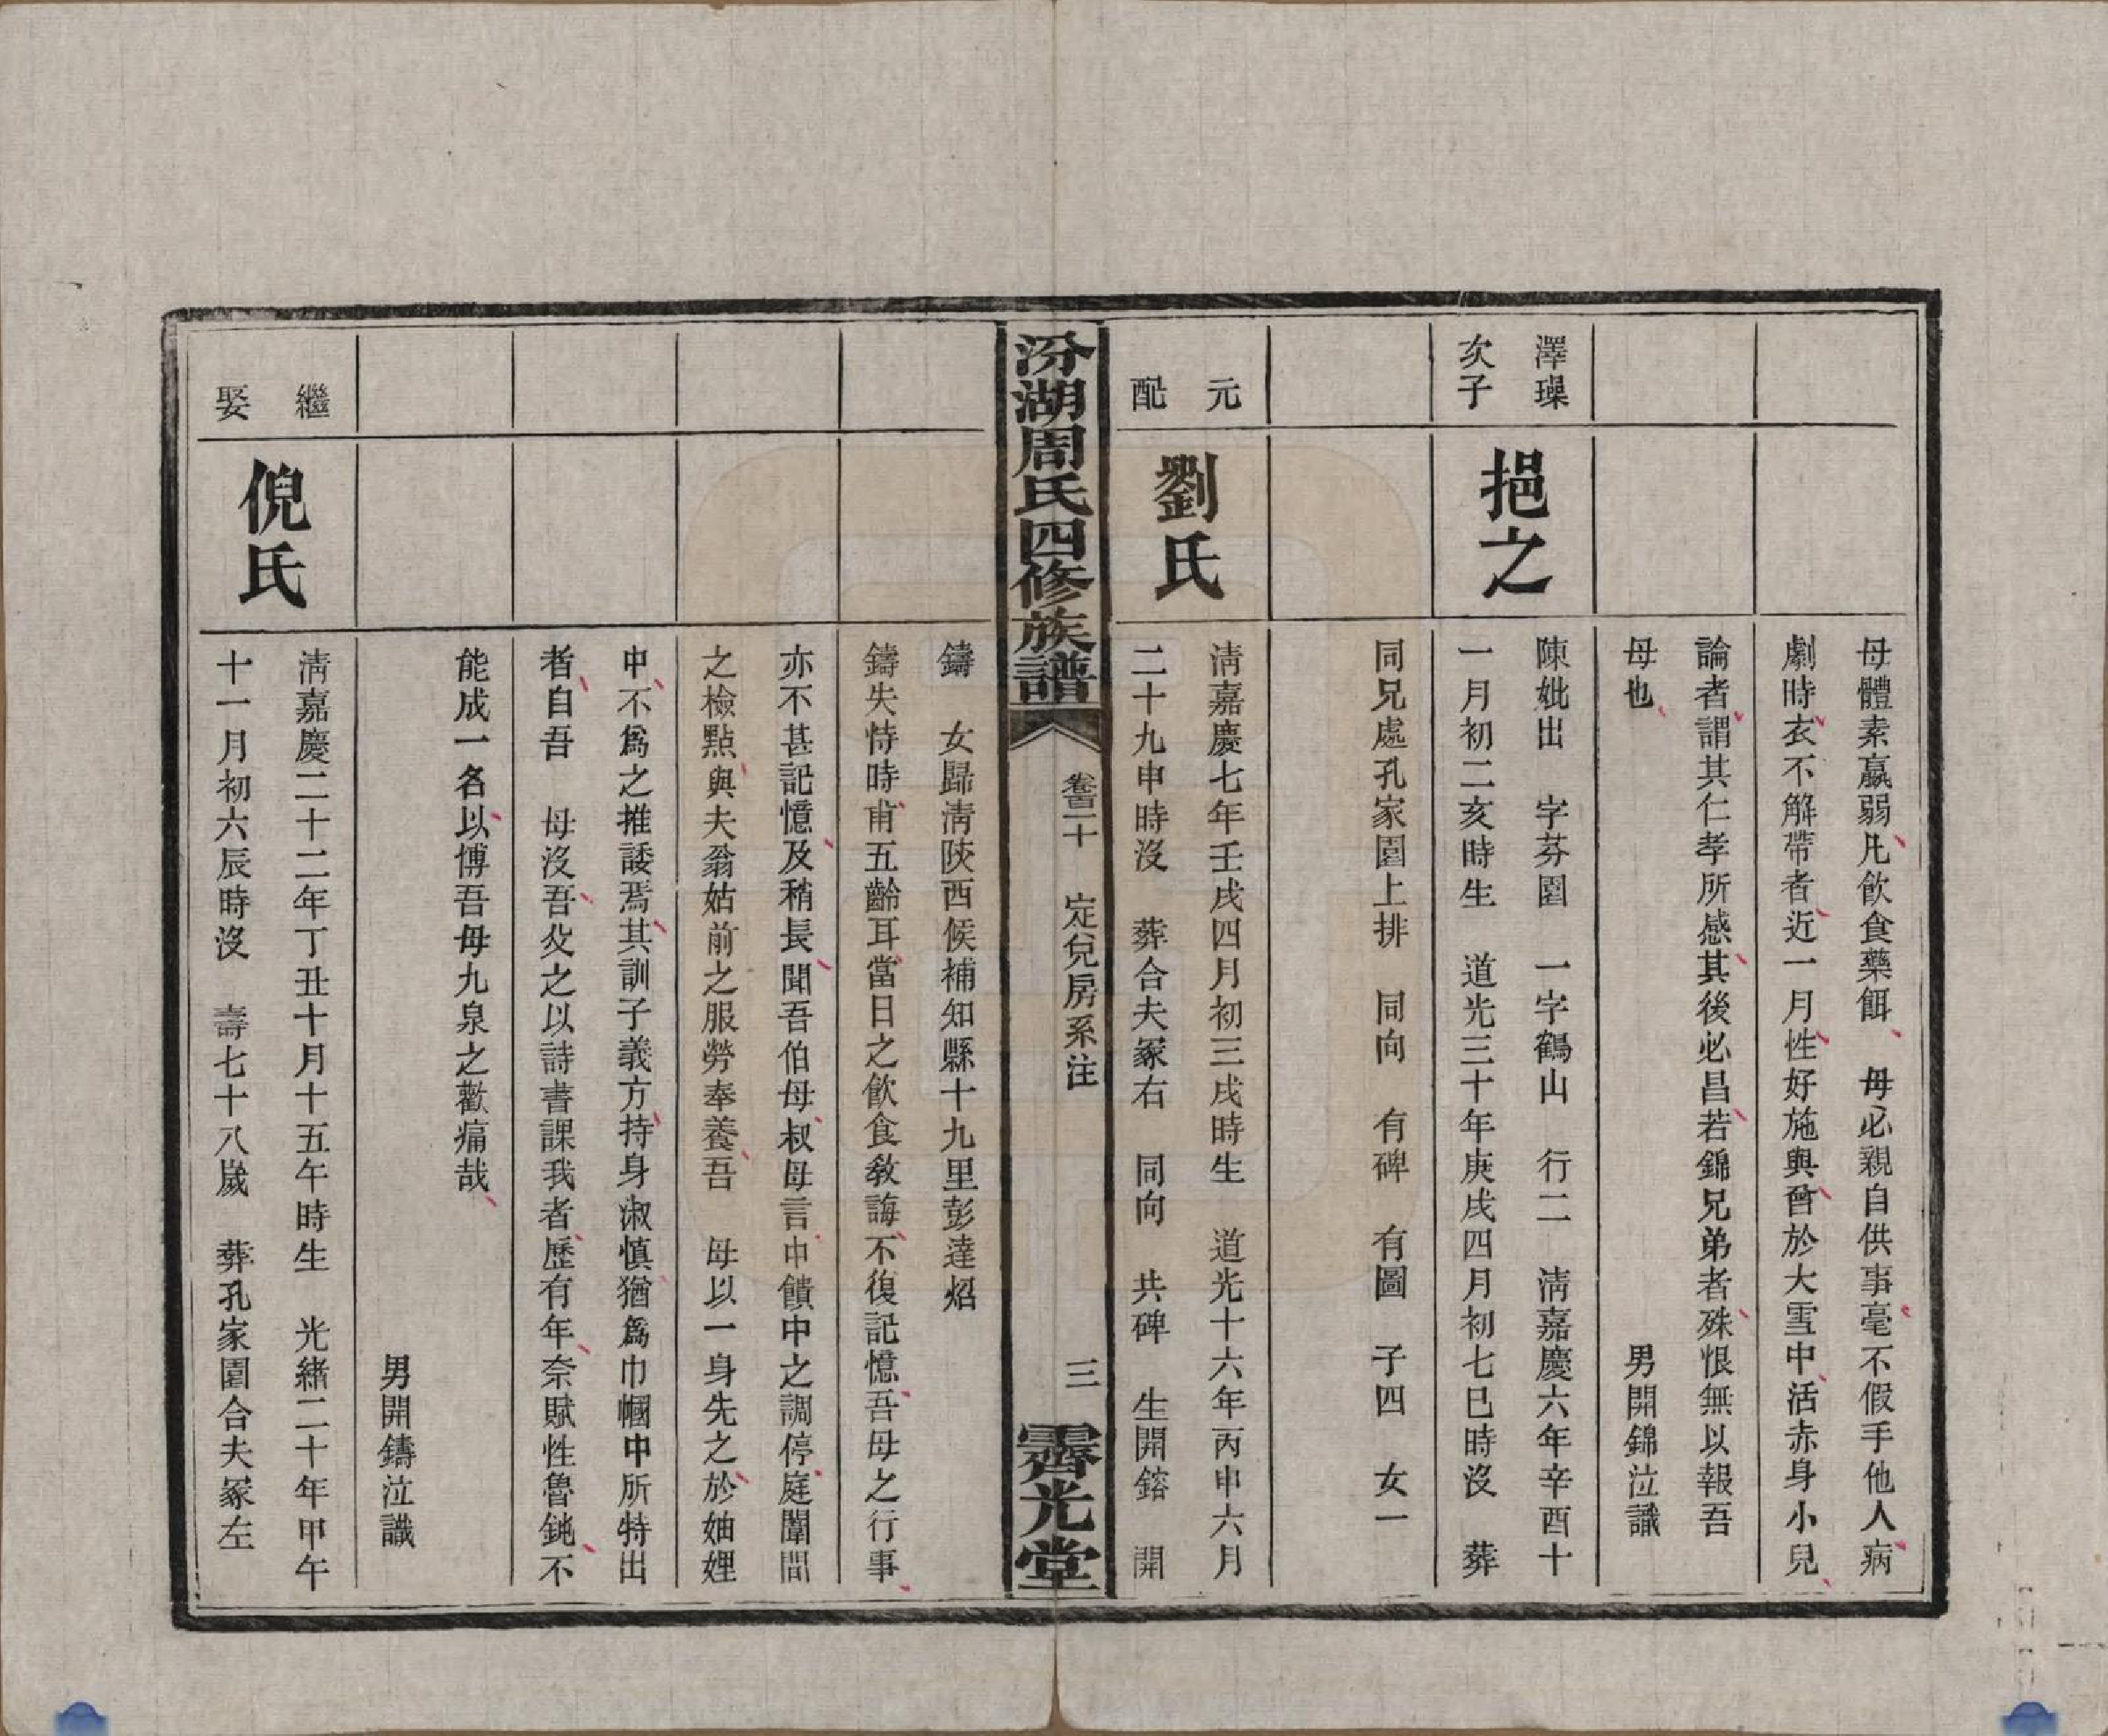 母體素羸弱凡飲食藥餌　母必親自供事毫不假手他人病
劇時衣不解帶者近一月性好施與曾於大雪中活赤身小兒
論者謂其仁孝所感其後必昌若錦兄弟者殊恨無以報吾
母也　男開錦泣識
澤璪
次子
挹之
陳妣出　字芬園　一字鶴山　行二　淸嘉慶六年辛酉十
一月初二亥時生　道光三十年庚戌四月初七巳時沒　葬
同兄處孔家園上排　同向　有碑　有圖　子四　女一
元
配
劉氏
淸嘉慶七年壬戌四月初三戌時生　道光十六年丙申六月
二十九申時沒　葬合夫冢右　同向　共碑　生開鎔　開
汾湖周氏四修族譜
卷二十　定兌房系注　三
霽光堂
鑄　女歸淸陝西候補知縣十九里彭達炤
鑄失恃時甫五齡耳當日之飲食敎誨不復記憶吾母之行事
亦不甚記憶及稍長聞吾伯母叔母言中饋中之調停庭闈間
之檢點與夫翁姑前之服勞奉養吾　母以一身先之於妯娌
中不爲之推諉焉其訓子義方持身淑慎猶爲巾幗中所特出
者自吾　母沒吾父之以詩書課我者歷有年奈賦性魯鈍不
能成一名以博吾母九泉之歡痛哉
男開鑄泣識
繼
娶
倪氏
淸嘉慶二十二年丁丑十月十五午時生　光緒二十年甲午
十一月初六辰時沒　壽七十八歲　葬孔家園合夫冢左